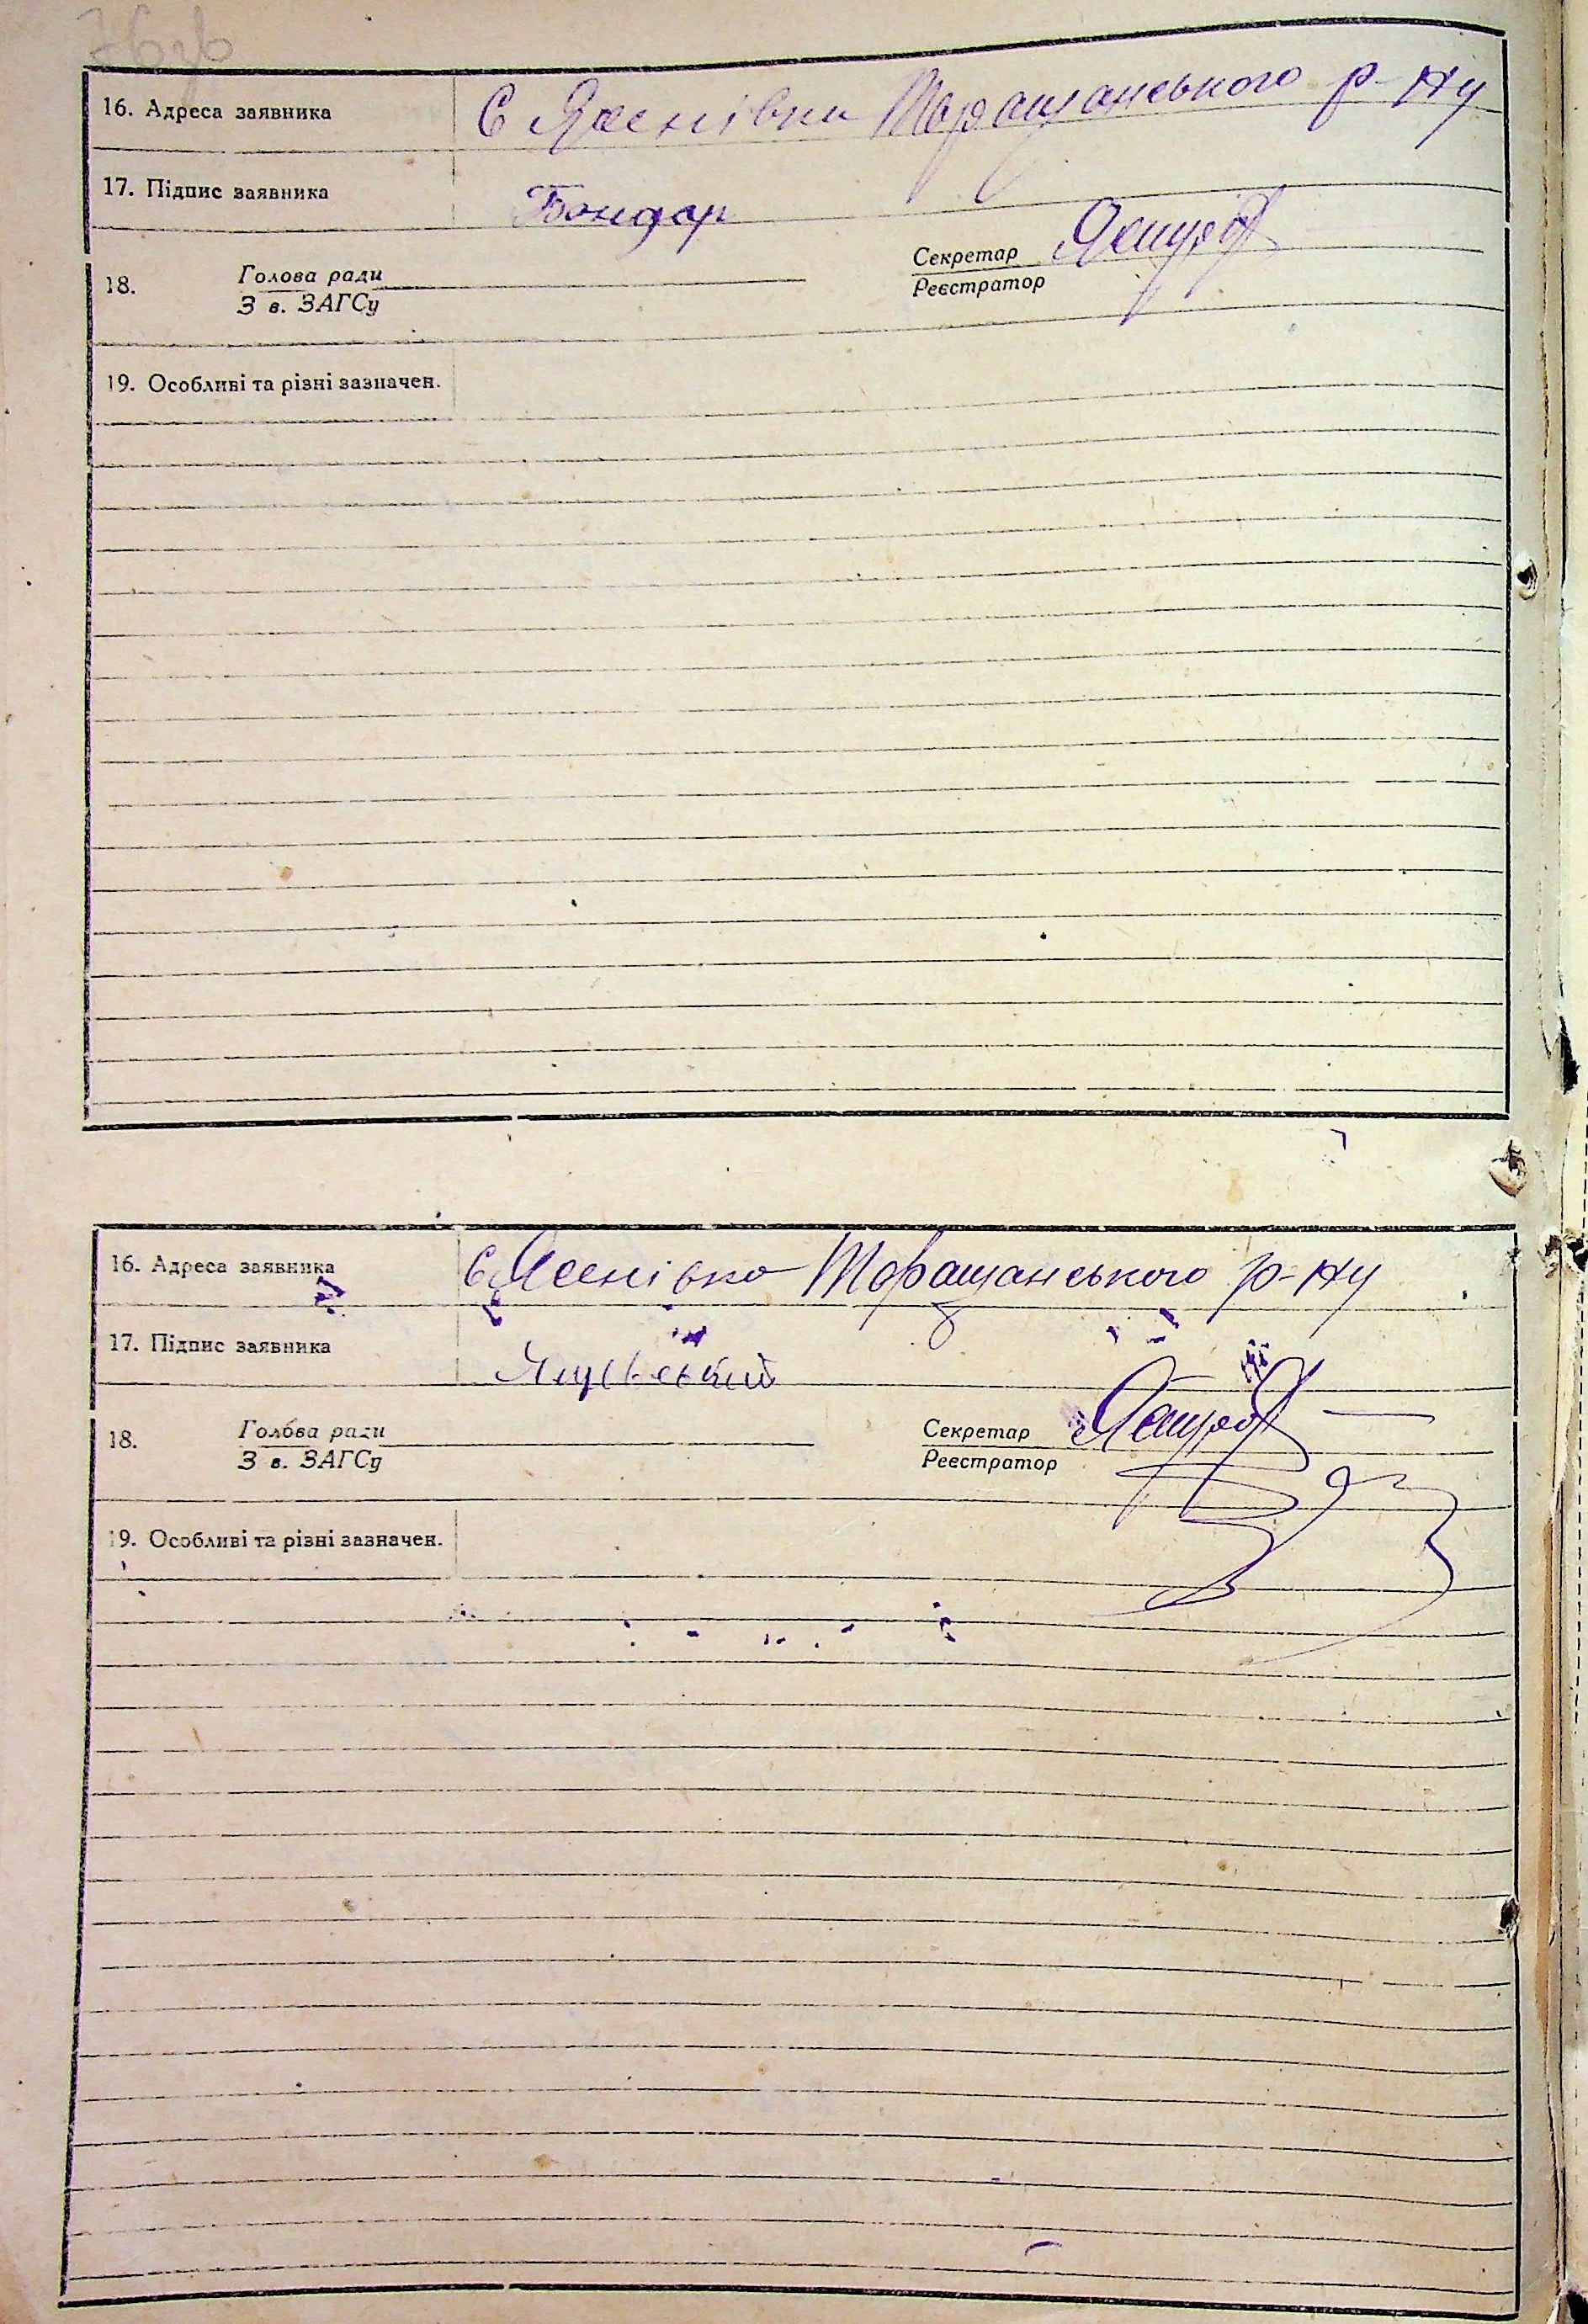 16. Адреса заявника С Яснівка Таращанського р-ну
17. Підпис заявника Бондар
18. Голова ради Секретар
З в. ЗАГСу Реєстратор
19. Особливі та різні зазначен.
16. Адреса заявника С Яснівка Таращанського р-ну
17. Підпис заявника
18. Голова ради Секретар
З в. ЗАГСу Реєстратор
19. Особливі та різні зазначен.